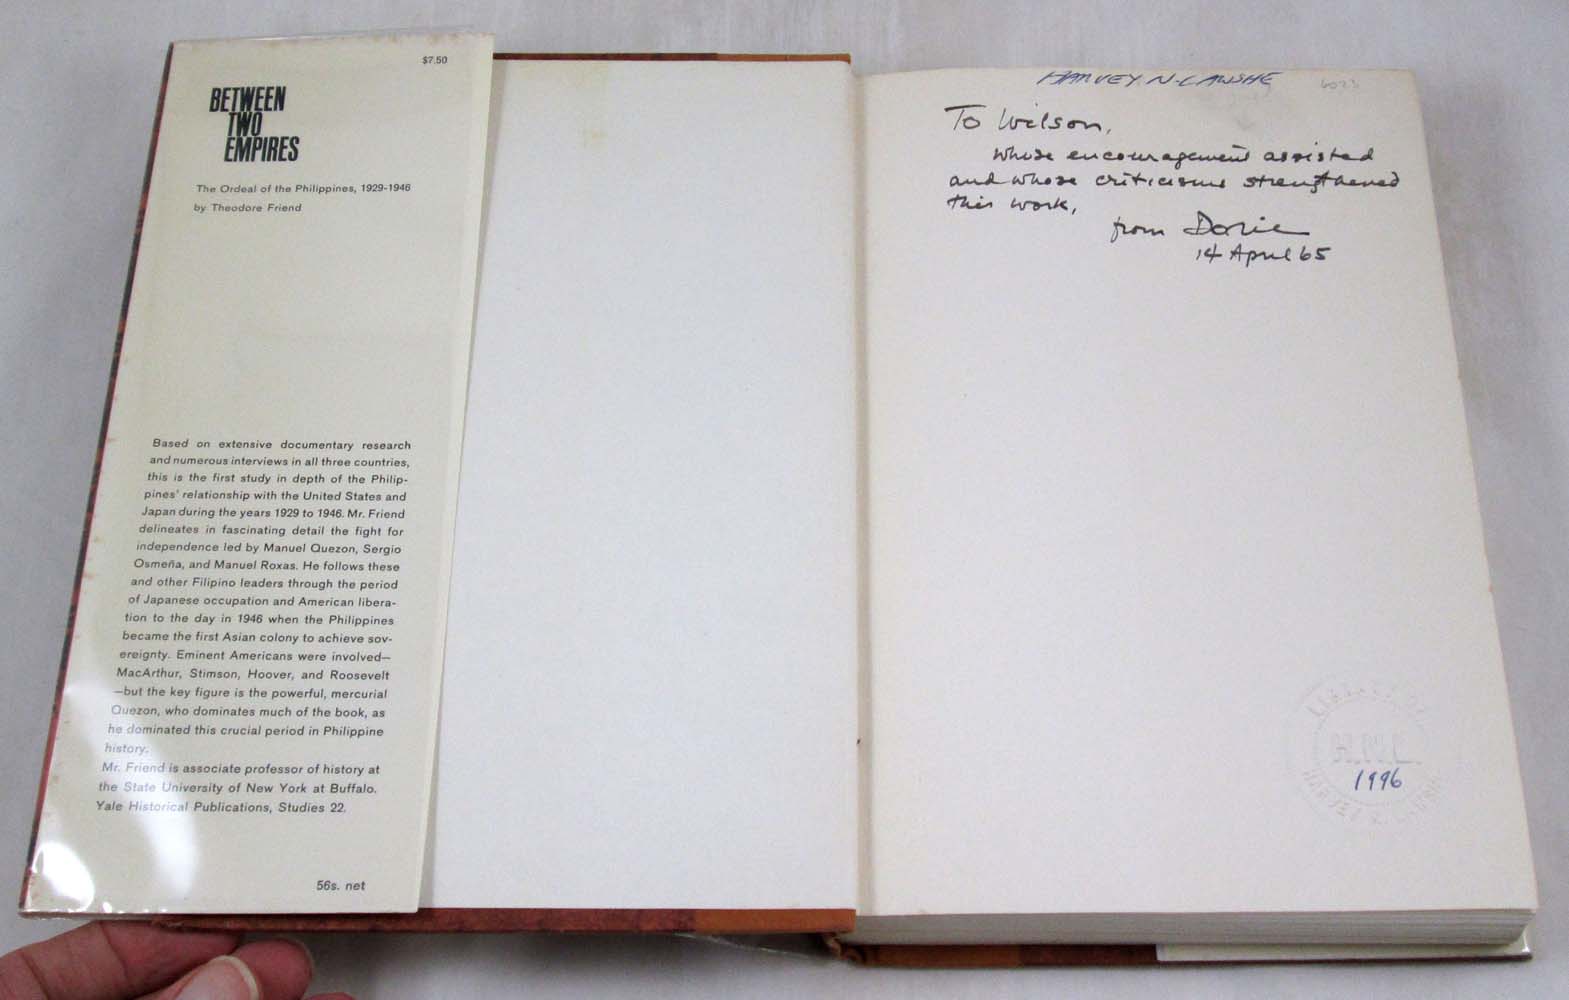 $7.50
BETWEEN
TWO
EMPIRES
The Ordeal of the Philippines, 1929-1946
by Theodore Friend
Based on extensive documentary research
and numerous interviews in all three countries,
this is the first study in depth of the Philip-
pines' relationship with the United States and
Japan during the years 1929 to 1946. Mr. Friend
delineates in fascinating detail the fight for
independence led by Manuel Quezon, Sergio
Osmeña, and Manuel Roxas. He follows these
and other Filipino leaders through the period
of Japanese occupation and American libera-
tion to the day in 1946 when the Philippines
became the first Asian colony to achieve sov-
ereignty. Eminent Americans were involved—
MacArthur, Stimson, Hoover, and Roosevelt
—but the key figure is the powerful, mercurial
Quezon, who dominates much of the book, as
he dominated this crucial period in Philippine
history.
Mr. Friend is associate professor of history at
the State University of New York at Buffalo.
Yale Historical Publications, Studies 22.
56s. net
HARVEY N. LAWSHE
To Wilson,
whose encouragement assisted
and whose criticisms strengthened
this work,
from Dorie
14 April 65
LIBRARY OF
1996